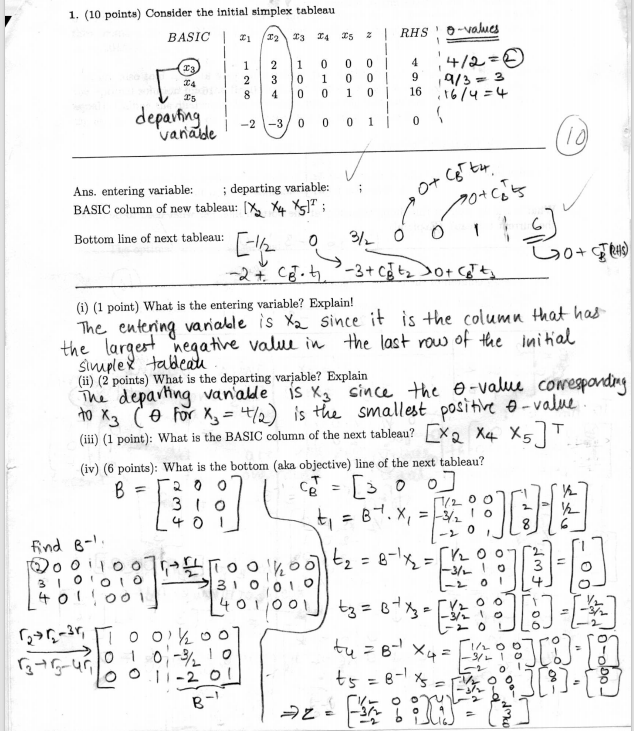 1. (10 points) Consider the initial simplex tableau
BASIC | x1 x2 x3 x4 x5 z | RHS θ-values
x3 | 1 2 1 0 0 0 | 4 4/2 = 2
x4 | 2 3 0 1 0 0 | 9 9/3 = 3
x5 | 8 4 0 0 1 0 | 16 16/4 = 4
departing variable
| -2 -3 0 0 0 1 | 0
10
Ans. entering variable: ; departing variable: ;
BASIC column of new tableau: [X2 X4 X5]T ;
0+ CBT t4.
0+ CBT t5
Bottom line of next tableau: [-1/2 0 3/2 0 0 1 | 6]
-2 + CBT · t1 -3 + CBT t2 0 + CBT t3 0 + CBT (RHS)
(i) (1 point) What is the entering variable? Explain!
The entering variable is X2 since it is the column that has
the largest negative value in the last row of the initial
simplex tableau
(ii) (2 points) What is the departing variable? Explain
The departing variable is X3 since the θ-value corresponding
to X3 (θ for X3 = 4/2) is the smallest positive θ-value.
(iii) (1 point): What is the BASIC column of the next tableau? [X2 X4 X5]T
(iv) (6 points): What is the bottom (aka objective) line of the next tableau?
B = [2 0 0
3 1 0
4 0 1]
CBT = [3 0 0]
t1 = B-1. X1 = [1/2 0 0 -3/2 1 0 -2 0 1] [1 2 8] = [1/2 1/2 6]
find B-1.
[2 0 0 | 1 0 0
3 1 0 | 0 1 0
4 0 1 | 0 0 1]
r1→r1/2
[1 0 0 | 1/2 0 0
3 1 0 | 0 1 0
4 0 1 | 0 0 1]
t2 = B-1 X2 = [1/2 0 0 -3/2 1 0 -2 0 1] [2 3 4] = [1 0 0]
t3 = B-1 X3 = [1/2 0 0 -3/2 1 0 -2 0 1] [1 0 0] = [1/2 -3/2 -2]
r2→r2-3r1
r3→r3-4r1
[1 0 0 | 1/2 0 0
0 1 0 | -3/2 1 0
0 0 1 | -2 0 1]
B-1
t4 = B-1 X4 = [1/2 0 0 -3/2 1 0 -2 0 1] [0 1 0] = [0 1 0]
t5 = B-1 X5 = [1/2 0 0 -3/2 1 0 -2 0 1] [0 0 1] = [0 0 1]
⇒ Z = [1/2 0 0 -3/2 1 0 -2 0 1] [4 9 16] = [2 3 8]